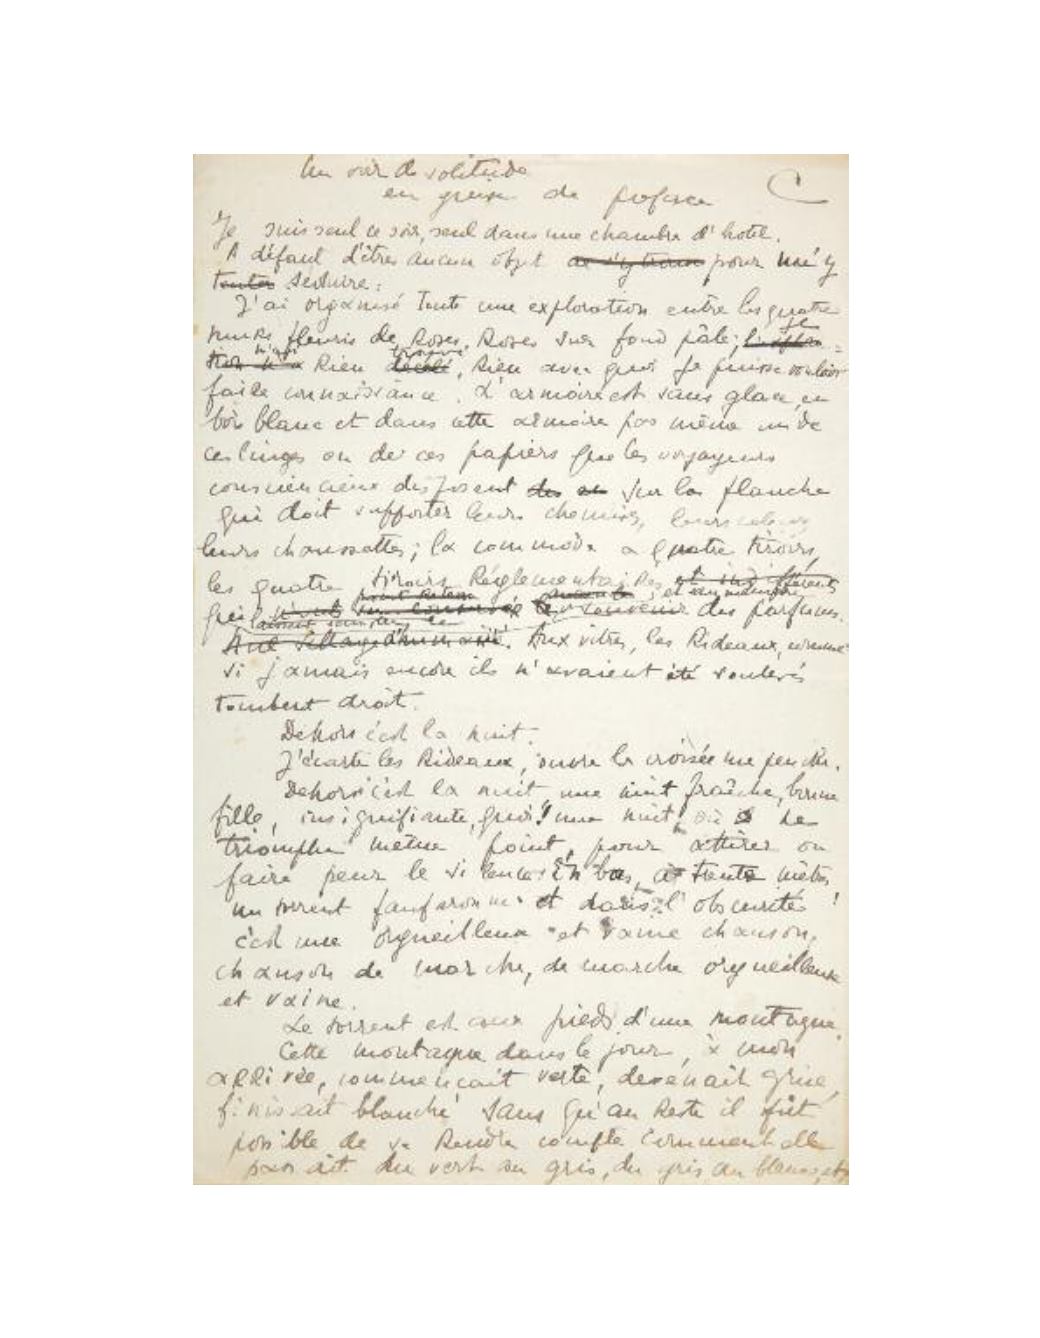 Un soir de solitude
en guise de préface
Je suis seul ce soir, seul dans une chambre d'hôtel.
A défaut d'êtres aucun objet pour m'y
séduire :
J'ai organisé toute une exploration entre les quatre
murs fleuris de Roses, Roses sur fond pâle; je
n'ai Rien trouvé, Rien avec quoi je puisse vouloir
faire connaissance. L'armoire est sans glace, en
bois blanc et dans cette armoire pas même un de
ces linges ou de ces papiers que les voyageurs
consciencieux disposent sur la planche
qui doit supporter leurs chemises, leurs caleçons,
leurs chaussettes; la commode a quatre tiroirs,
les quatre tiroirs Réglementaires
souvenir des parfums.
Aux vitres, les Rideaux, comme
si jamais encore ils n'avaient été soulevés
tombent droit.
Dehors c'est la nuit.
J'écarte les Rideaux, ouvre la croisée me penche.
Dehors c'est la nuit une nuit fraîche, bonne
fille, insignifiante, quoi! une nuit où ne
triomphe même point, pour attirer ou
faire peur le silence. En bas, à trente mètres
un torrent fanfaronne et dans l'obscurité
c'est une orgueilleuse et vaine chanson,
chanson de marche, de marche orgueilleuse
et vaine.
Le torrent est aux pieds d'une montagne.
Cette montagne dans le jour, à mon
aRRivée, commençait verte, devenait grise,
finissait blanche sans qu'au Reste il fût
possible de se Rendre compte comment elle
passait du vert au gris, du gris au blanc, et